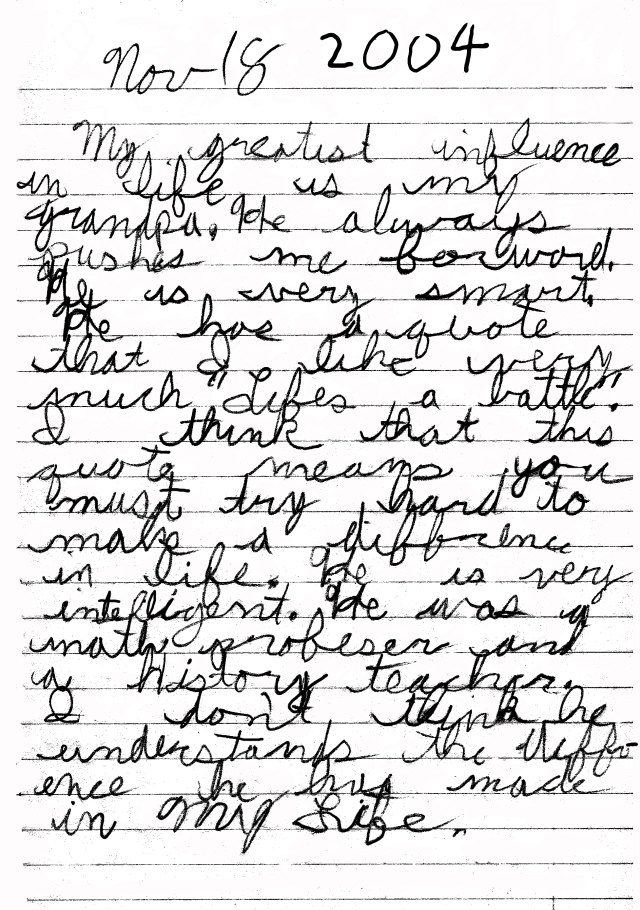 Nov-18 2004
My greatist influence
in life is my
grandpa. He always
pushes me forword.
He is very smart.
He has a quote
that I like very
much "Lifes a battle".
I think that this
quote means you
must try hard to
make a diffrence
in life. He is very
intelligent. He was a
math profeser and
a History teacher.
I don't think he
understands the diffr-
ence he has made
in My Life.